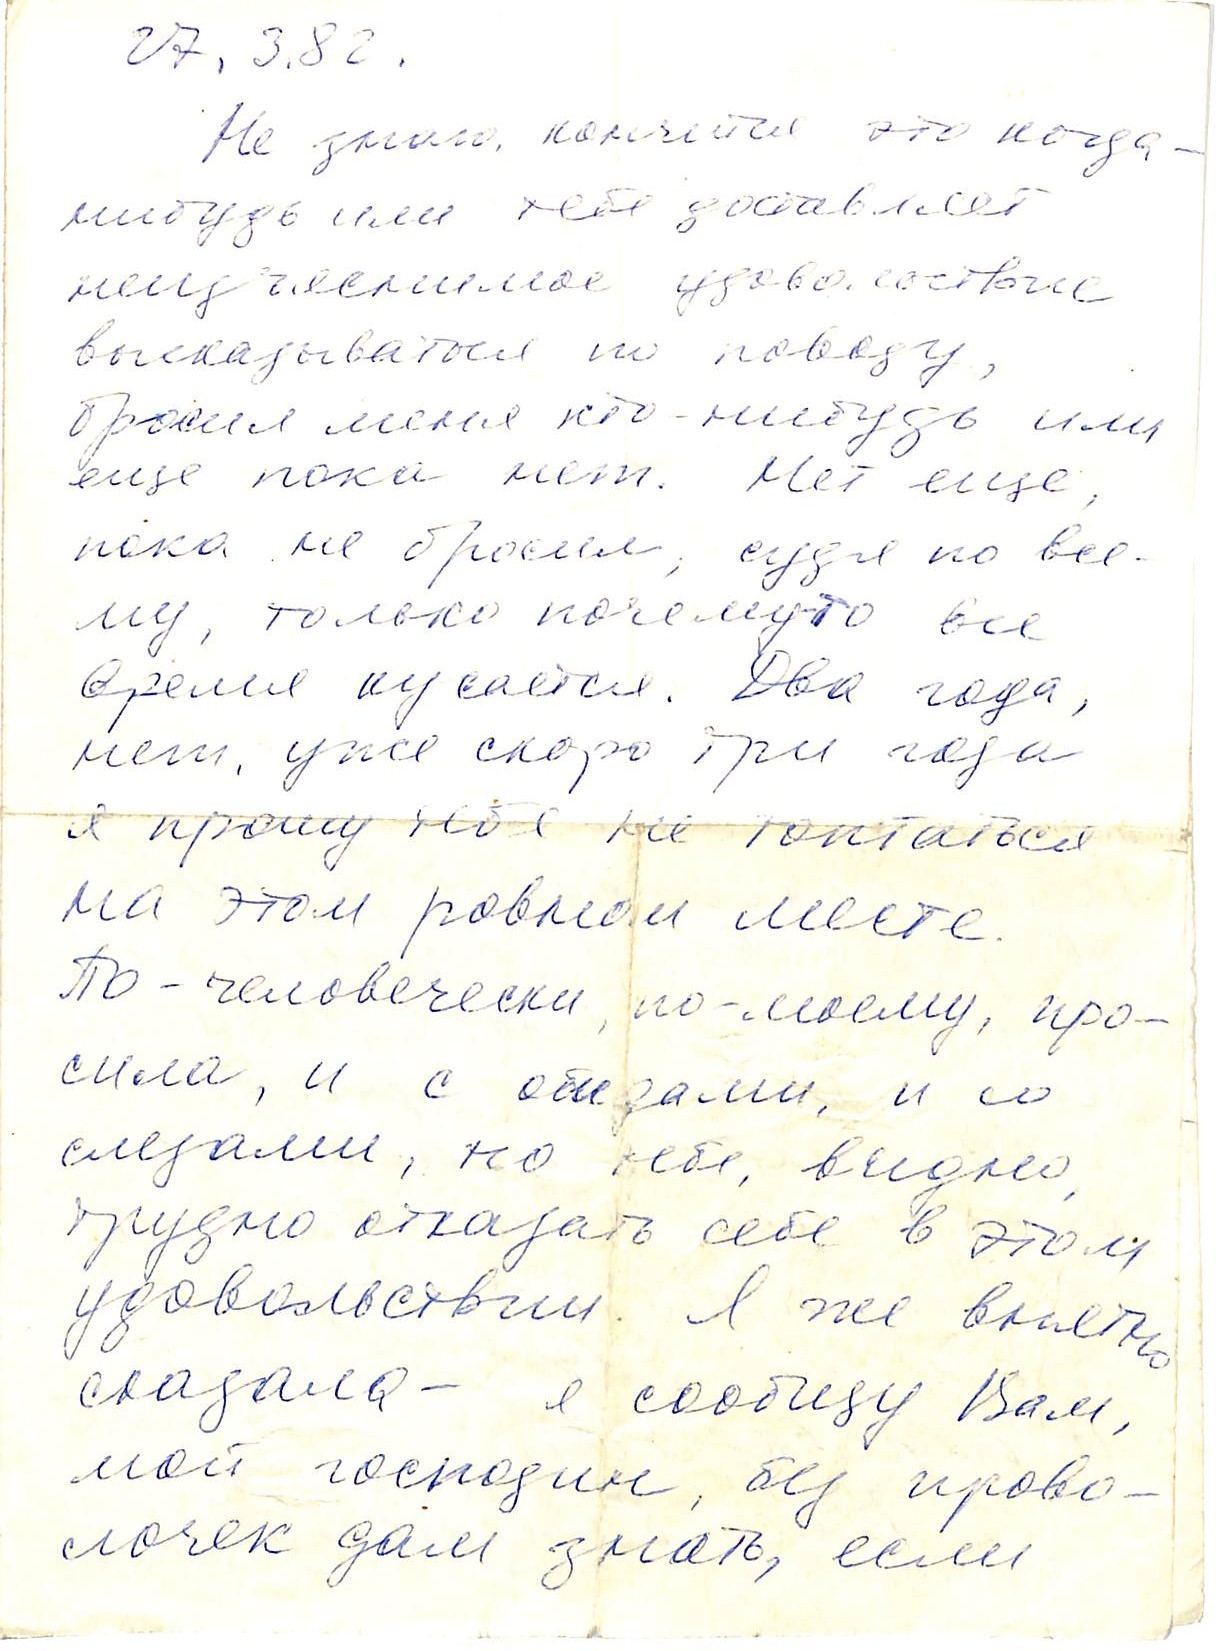 27.3.82.
Не знаю, кончится это когда-
нибудь или тебе доставляет
неизъяснимое удовольствие
высказываться по поводу,
бросил меня кто-нибудь или
еще пока нет. Нет еще,
пока не бросил, судя по все-
му, только почему-то все
время кусается. Два года,
нет, уже скоро три года
я прошу тебя не топтаться
на этом ровном месте.
По-человечески, по-моему, про-
сила, и с обидами, и со
слезами, но тебе, видно,
трудно отказать себе в этом
удовольствии. Я же внятно
сказала - я сообщу Вам,
мой господин, без прово-
лочек дам знать, если